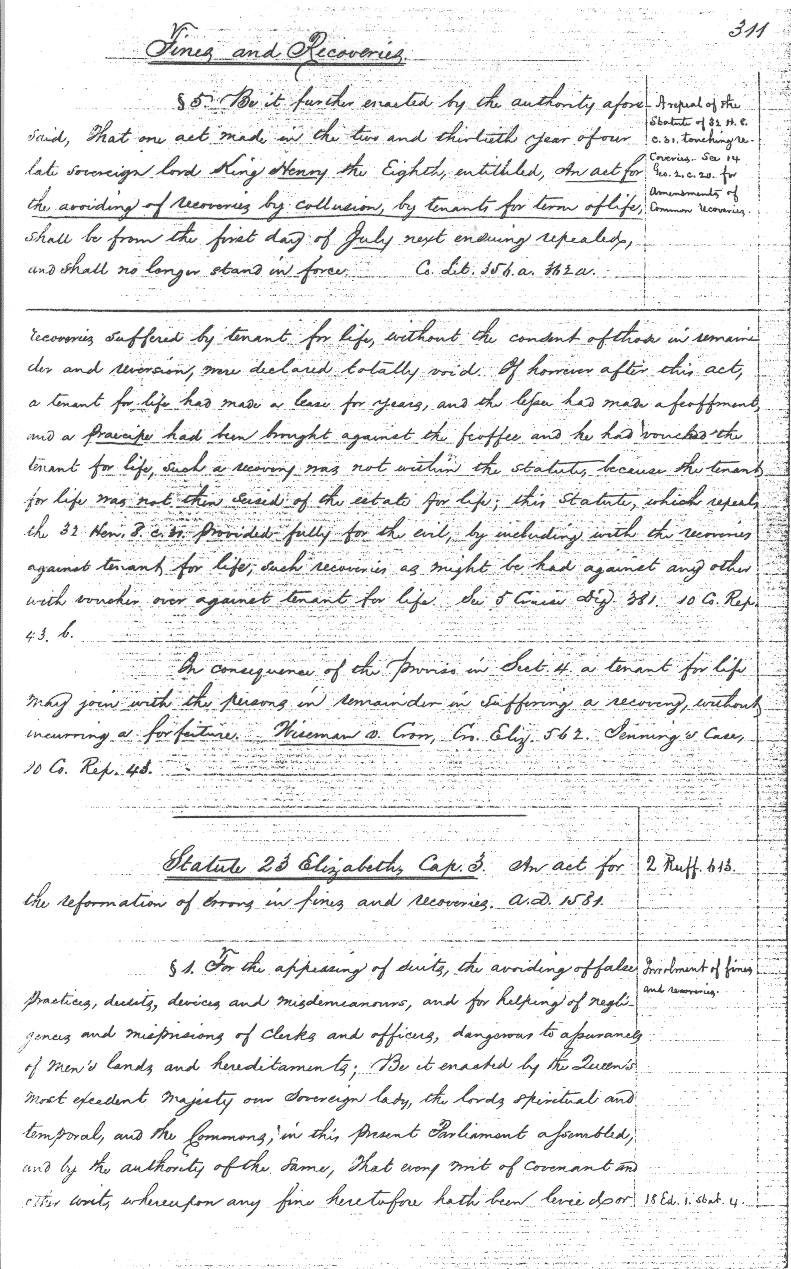 311
Fines and Recoveries.
§ 5. Be it further enacted by the authority afore
said, That one act made in the two and thirtieth year of our
late sovereign lord King Henry the Eighth, entituled, An act for
the avoiding of recoveries by collusion, by tenants for term of life,
shall be from the first day of July next ensuing repealed,
and shall no longer stand in force. Co. Lit. 356. a. 362 a.
A repeal of the
Statute of 32 H. 8.
c. 31. touching re-
coveries. See 14
Geo. 2. c. 20. for
Amendments of
Common recoveries.
recoveries suffered by tenant for life, without the consent of those in remain
der and reversion, were declared totally void. If however after this act,
a tenant for life had made a lease for years, and the lessee had made a feoffment,
and a Praecipe had been brought against the feoffee and he had vouched the
tenant for life, such a recovery was not within the statute, because the tenant
for life was not then seised of the estate for life; this Statute, which repeals
the 32 Hen. 8. c. 31. provided fully for the evil, by including with the recoveries
against tenant for life, such recoveries as might be had against any other
with voucher over against tenant for life. See 5 Cruise Dig. 381. 10 Co. Rep.
43. b.
In consequence of the proviso in Sect. 4 a tenant for life
may join with the persons in remainder in suffering a recovery, without
incurring a forfeiture. Wiseman v. Crow, Cro. Eliz. 562. Jenning's Case,
10 Co. Rep. 43.
Statute 23 Elizabeth, Cap. 3. An act for
the reformation of errors in fines and recoveries. A.D. 1581.
2 Ruff. 613.
§ 1. For the appeasing of suits, the avoiding of false
practices, deceits, devices and misdemeanours, and for helping of negli-
gences and misprisions of clerks and officers, dangerous to assurances
of men's lands and hereditaments; Be it enacted by the Queen's
most excellent majesty our sovereign lady, the lords spiritual and
temporal, and the Commons, in this present Parliament assembled,
and by the authority of the same, That every writ of covenant and
other writ, whereupon any fine heretofore hath been levied, or
Inrolment of fines
and recoveries.
18 Ed. 1. Stat. 4.